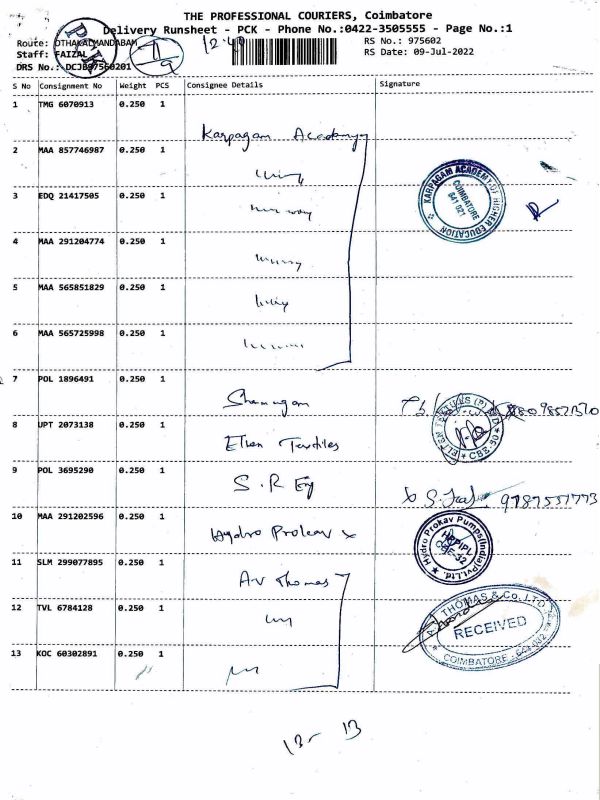 THE PROFESSIONAL COURIERS, Coimbatore
Delivery Runsheet - PCK - Phone No.:0422-3505555 - Page No.:1
Route: OTHAKALMANDABAM
12.40
RS No.: 975602
Staff: FAIZAL
RS Date: 09-Jul-2022
DRS No.: DCJB97560201
S No Consignment No Weight PCS Consignee Details Signature
1 TMG 6070913 0.250 1
Karpagam Academy
2 MAA 857746987 0.250 1
3 EDQ 21417505 0.250 1
KARPAGAM ACADEMY OF HIGHER EDUCATION
COIMBATORE
641 021
4 MAA 291204774 0.250 1
5 MAA 565851829 0.250 1
6 MAA 565725998 0.250 1
7 POL 1896491 0.250 1
Shanmugam
8 UPT 2073138 0.250 1
Elten Textiles
ELTEN TEXTILES (P) LTD
CBE 05
9 POL 3695290 0.250 1
S.R Eng
9787551773
10 MAA 291202596 0.250 1
Hydro Prokav
Hydro Prokav Pumps(India)Pvt.Ltd.
HPPIPL
CBE-32
11 SLM 299077895 0.250 1
AV Thomas
12 TVL 6784128 0.250 1
THOMAS & Co. LTD.
RECEIVED
COIMBATORE
13 KOC 60302891 0.250 1
13 - 13